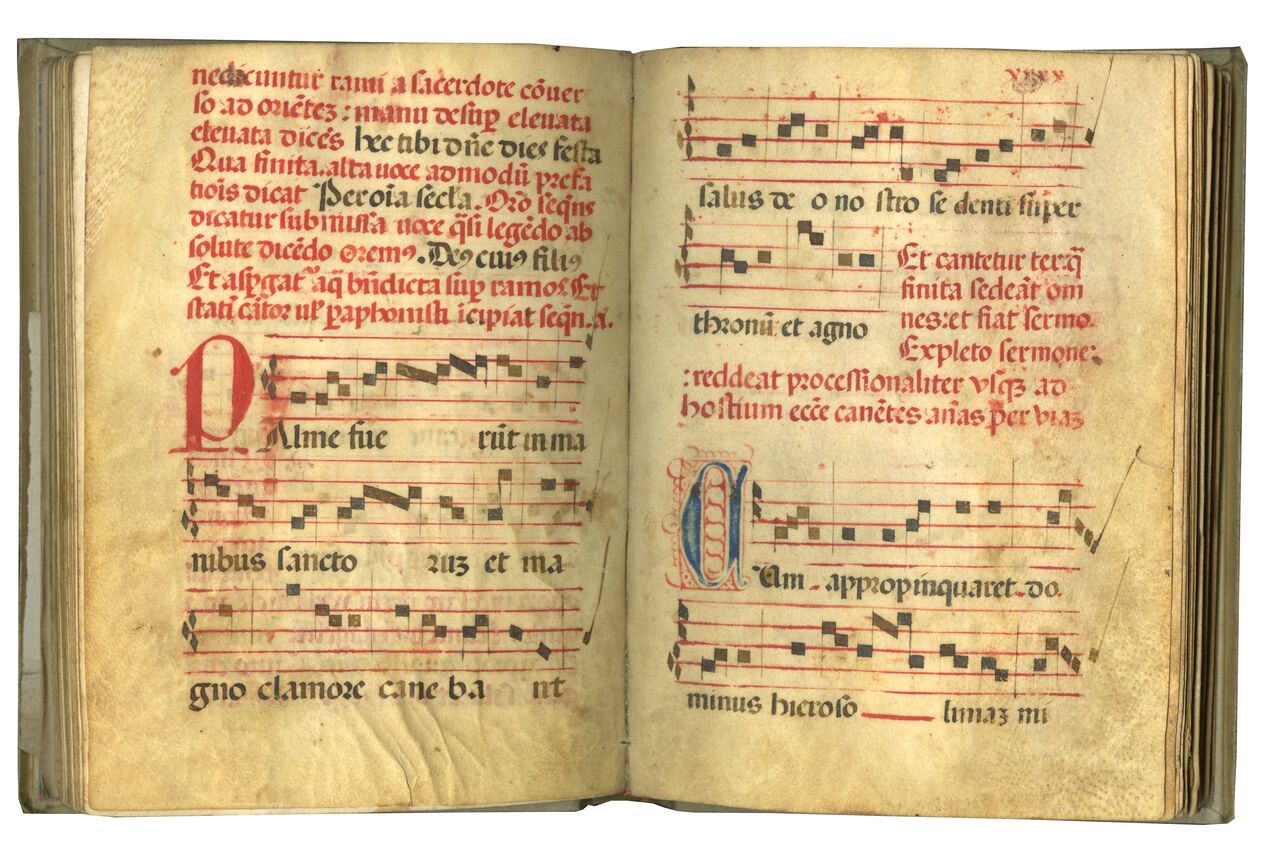 nedicuntur rami a sacerdote cōuer
so ad oriētez : manu desup̱ eleuata
eleuata dicēs hec tibi dn̄e dies festa
Qua finita. alta uoce ad modū prefa
tiōis dicat Per oīa secl̄a. Or̄o seq̄ns
dicatur submissa uoce q̄si legēdo ab
solute dicēdo oremꝰ. Deꝰ cuiꝰ filiꝰ
Et asp̱gat aq̄ bn̄dicta sup̱ ramos. Et
statī cātor ul̓ paphonista īcipiat seqn̄. a.
PAlme fue rūt in ma
nibus sancto ruꝫ et ma
gno clamore cane ba nt
xxxx
salus de o no stro se denti super
thronū et agno
Et cantetur terq̄
finita sedeāt om
nes: et fiat sermo.
Expleto sermone:
: reddeat processionaliter vsqꝫ ad
hostium ecc̄e canētes an̄as per viaꝫ
CUm appropinquaret do
minus hieroso limaꝫ mi